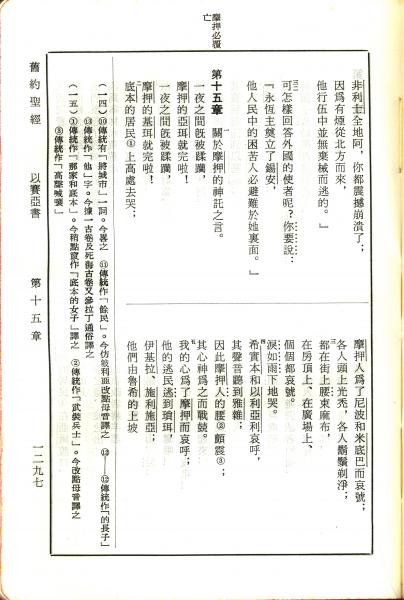 摩押必覆
亡
舊約聖經　以賽亞書　第十五章　一二九七
非利士全地阿，你都震撼崩潰了；
因爲有煙從北方而來，
他行伍中並無棄械而逃的。」
三二可怎樣回答外國的使者呢？你要說：
『永恆主奠立了錫安，
他人民中的困苦人必避難於她裏面。』
第十五章　一關於摩押的神託之言。
一夜之間旣被蹂躪，
摩押的亞珥就完啦！
一夜之間旣被蹂躪，
摩押的基珥就完啦！
二底本的居民①上高處去哭；
摩押人爲了尼波和米底巴而哀號；
各人頭上光禿，各人鬍鬚剃淨；
三都在街上腰束麻布，
在房頂上、在廣場上、
個個都哀號，
淚如雨下地哭。
四希實本和以利亞利哀呼，
其聲音聽到雅雜；
因此摩押人的腰②顫震③；
其心神爲之而戰兢。
五我的心爲了摩押而哀呼，
他的逃民逃到瑣珥、
伊基拉、施利施亞；
他們由魯希的上坡
（一四）⑩傳統有「將城市」一詞。今畧之　⑪傳統作「餘民」。今仿敍利亞改點母音譯之　⑫——⑫傳統作「的長子」
⑬傳統作「他」字。今據一古卷及死海古卷又參拉丁通俗譯之
（一五）①傳統作「那家和底本」。今稍點竄作「底本的女子」譯之　②傳統作「武裝兵士」。今改點母音譯之
③傳統作「高聲喊嚷」